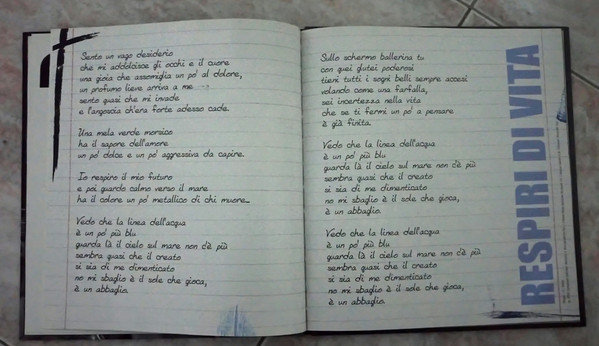 Sento un vago desiderio
che mi addolcisce gli occhi e il cuore
una gioia che assomiglia un po' al dolore,
un profumo lieve arriva a me
sento quasi che mi invade
e l'angoscia ch'era forte adesso cade.
Una mela verde morsico
ha il sapore dell'amore
un po' dolce e un po' aggressiva da capire.
Io respiro il mio futuro
e poi guardo calmo verso il mare
ha il colore un po' metallico di chi muore...
Vedo che la linea dell'acqua
è un po' più blu
guarda là il cielo sul mare non c'è più
sembra quasi che il creato
si sia di me dimenticato
no mi sbaglio è il sole che gioca,
è un abbaglio.
Sullo schermo ballerina tu
con quei glutei poderosi
tieni tutti i sogni belli sempre accesi
volando come una farfalla,
sei incertezza nella vita
che se ti fermi un po' a pensare
è già finita.
Vedo che la linea dell'acqua
è un po' più blu
guarda là il cielo sul mare non c'è più
sembra quasi che il creato
si sia di me dimenticato
no mi sbaglio è il sole che gioca,
è un abbaglio.
Vedo che la linea dell'acqua
è un po' più blu
guarda là il cielo sul mare non c'è più
sembra quasi che il creato
si sia di me dimenticato
no mi sbaglio è il sole che gioca,
è un abbaglio.
RESPIRI DI VITA